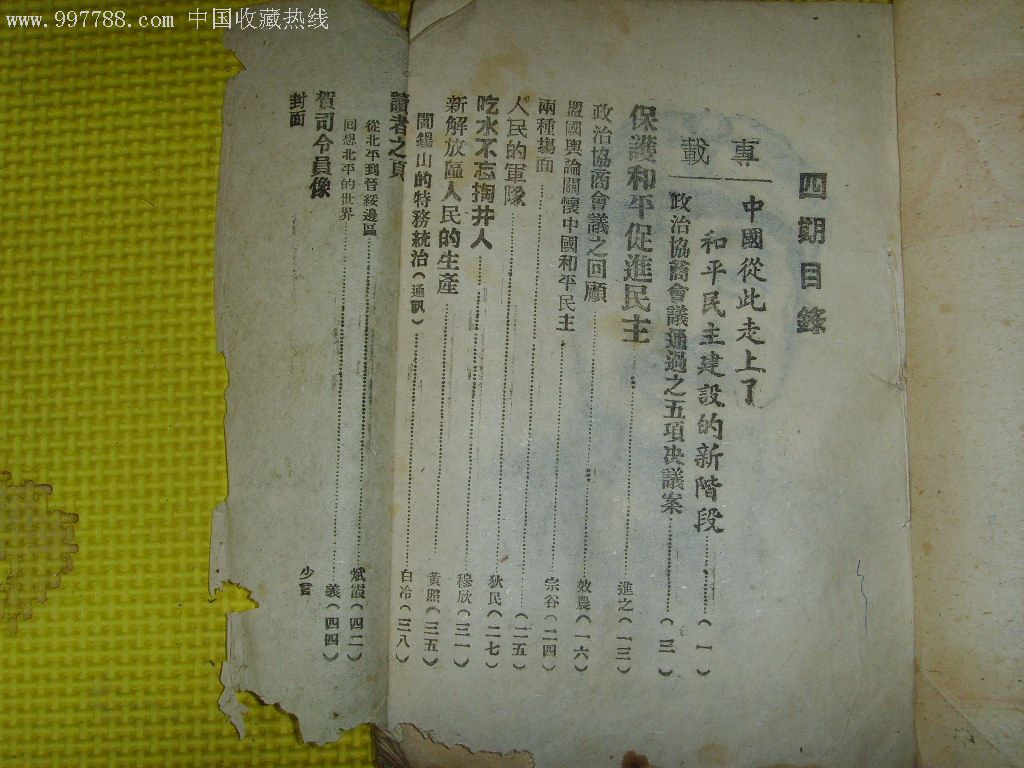 www.997788.com 中国收藏热线
四期目錄
專載
中國從此走上了
和平民主建設的新階段………(一)
政治協商會議通過之五項决議案………(三)
保護和平促進民主………進之(一三)
政治協商會議之回顧………效農(一六)
盟國輿論關懷中國和平民主………宗谷(二四)
兩種塲面………(二五)
人民的軍隊………狄民(二七)
吃水不忘掏井人………穆欣(三一)
新解放區人民的生產………黃照(三五)
閻錫山的特務統治(通訊)………白冷(三八)
讀者之頁
從北平到晉綏邊區………斌霞(四二)
回想北平的世界………義(四四)
賀司令員像 少言
對面